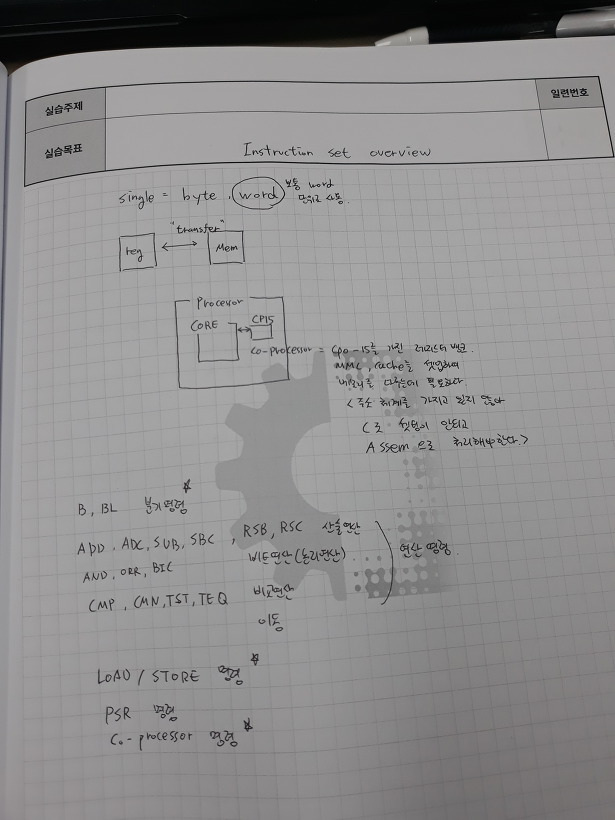 실습주제
일련번호
실습목표
Instruction set overview
single = byte, word 보통 word
단위로 사용.
"transfer"
reg
Mem
Processor
CORE
CP15
co-processor = cp0~15를 가진 레지스터 뱅크.
MMU, cache를 셋업하여
메모리를 다루는데 필요하다
<주소 체계를 가지고 있지 않다
C로 셋팅이 안되고
Assem으로 처리해야한다.>
B, BL 분기명령 ☆
ADD, ADC, SUB, SBC, RSB, RSC 산술연산
비트연산(논리연산)
연산 명령.
AND, ORR, BIC
CMP, CMN, TST, TEQ 비교연산
이동
LOAD / STORE 명령 ☆
PSR 명령
Co-processor 명령 ☆